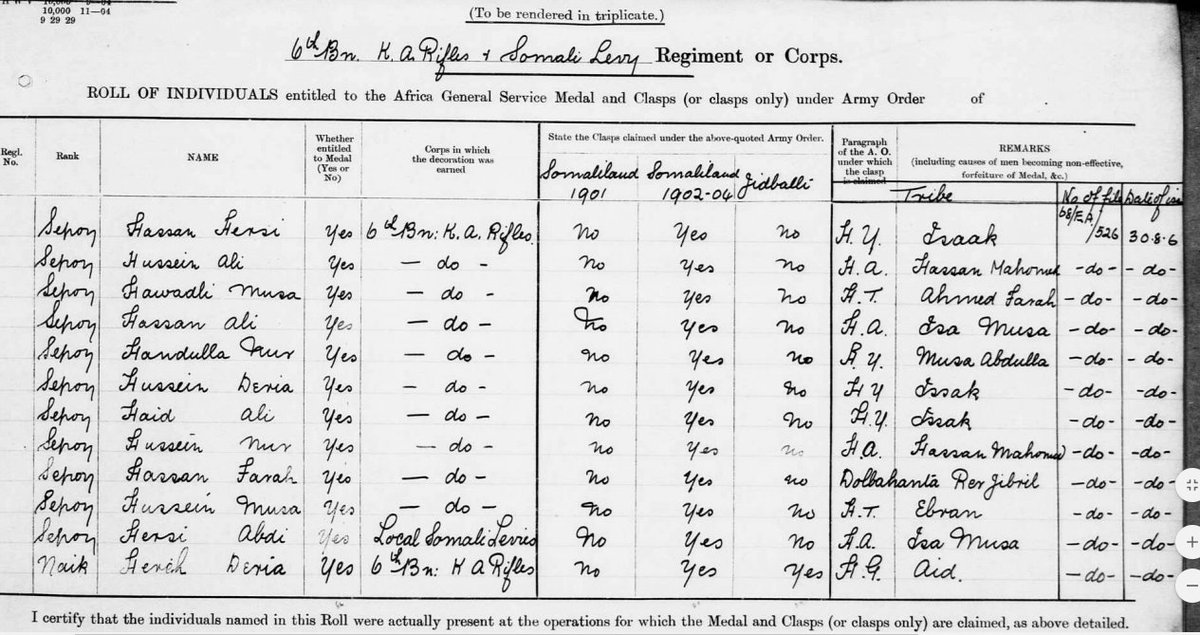 10,000 11—04
9 29 29
(To be rendered in triplicate.)
6th Bn. K. A. Rifles & Somali Levy Regiment or Corps.
ROLL OF INDIVIDUALS entitled to the Africa General Service Medal and Clasps (or clasps only) under Army Order of .
Regl. No. Rank NAME Whether entitled to Medal (Yes or No) Corps in which the decoration was earned State the Clasps claimed under the above-quoted Army Order. Paragraph of the A. O. under which the clasp is claimed REMARKS (including causes of men becoming non-effective, forfeiture of Medal, &c.)
Somaliland 1901 Somaliland 1902-04 Jidballi Tribe No of file Date of
Sepoy Hassan Hersi Yes 6th Bn: K. A. Rifles. No Yes no H. Y. Isaak 68/EA/526 30.8.6
Sepoy Hussein Ali Yes — do - No Yes no H. A. Hassan Mahomed -do- - do-
Sepoy Hawadli Musa Yes — do - No Yes no H. T. Ahmed Farah - do- -do-
Sepoy Hassan Ali Yes — do - No Yes no H. A. Isa Musa - do- - do-
Sepoy Handulla Nur Yes — do - no Yes no H. Y. Musa Abdulla -do- - do-
Sepoy Hussein Deria Yes - do - no Yes no H Y Issak -do- -do-
Sepoy Haid Ali Yes — do — no Yes No H. Y. Issak -do- -do-
Sepoy Hussein Nur Yes — do - no Yes no H A. Hassan Mahomed -do- -do-
Sepoy Hassan Farah Yes — do - no Yes no Dolbahanta Rer Jibril -do- -do-
Sepoy Hussein Musa Yes — do - no Yes no H. T. Ebran -do- -do-
Sepoy Hersi Abdi Yes Local Somali Levies No Yes no H. A. Isa Musa -do- -do-
Naik Deria Yes 6th Bn: K A Rifles no Yes Yes H. G. Aid. -do- -do-
I certify that the individuals named in this Roll were actually present at the operations for which the Medal and Clasps (or clasps only) are claimed, as above detailed.